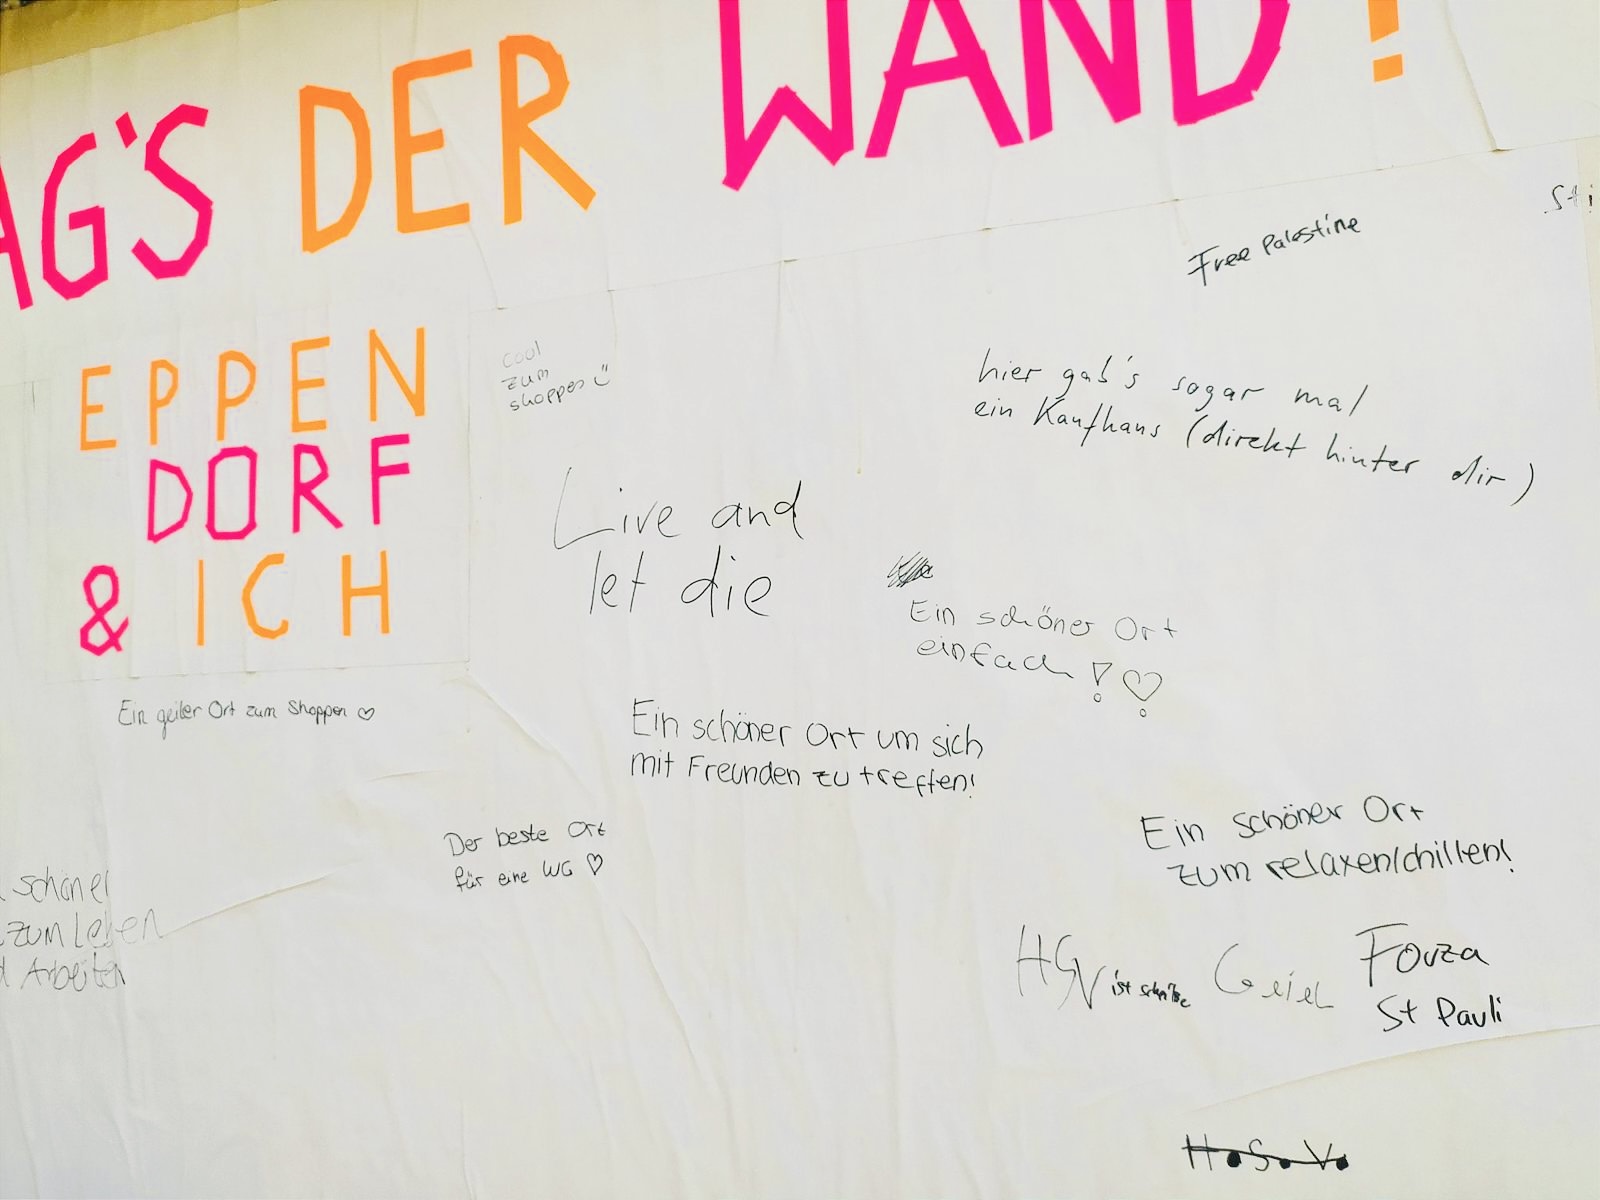 AG'S DER WAND!
EPPEN
DORF
& ICH
Free Palestine
Sti
cool
zum
shoppen
hier gab's sogar mal
ein Kaufhaus (direkt hinter dir)
Live and
let die
Ein schöner Ort
einfach!
Ein geiler Ort zum Shoppen
Ein schöner Ort um sich
mit Freunden zu treffen!
Der beste Ort
für eine WG
Ein schöner Ort
zum relaxen/chillen!
schöner
zum Leben
d Arbeiten
HSV ist
Geiel
Forza
St Pauli
H.S.V.